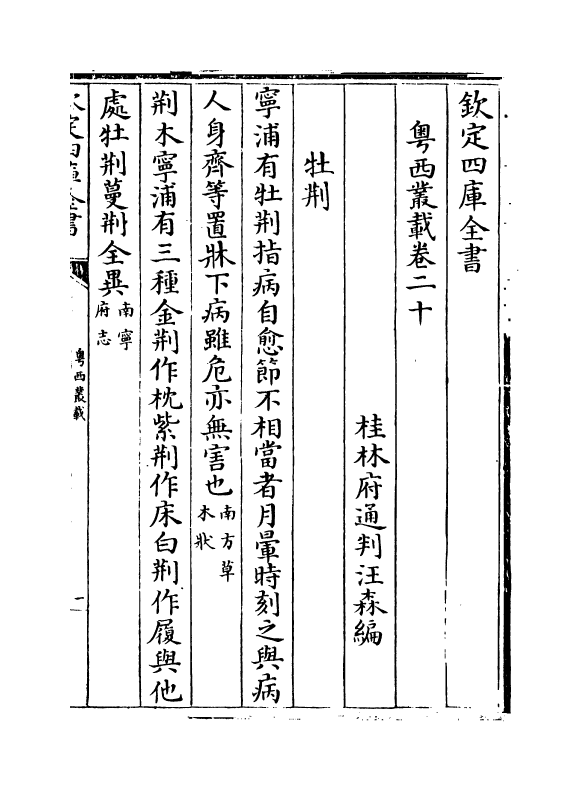 欽定四庫全書
粵西叢載卷二十
桂林府通判汪森編
牡荆
寧浦有牡荆指病自愈節不相當者月暈時刻之與病
人身齊等置牀下病雖危亦無害也南方草木狀
荆木寧浦有三種金荆作枕紫荆作床白荆作履與他
處牡荆蔓荆全異南寧府志
欽定四庫全書
粵西叢載
一